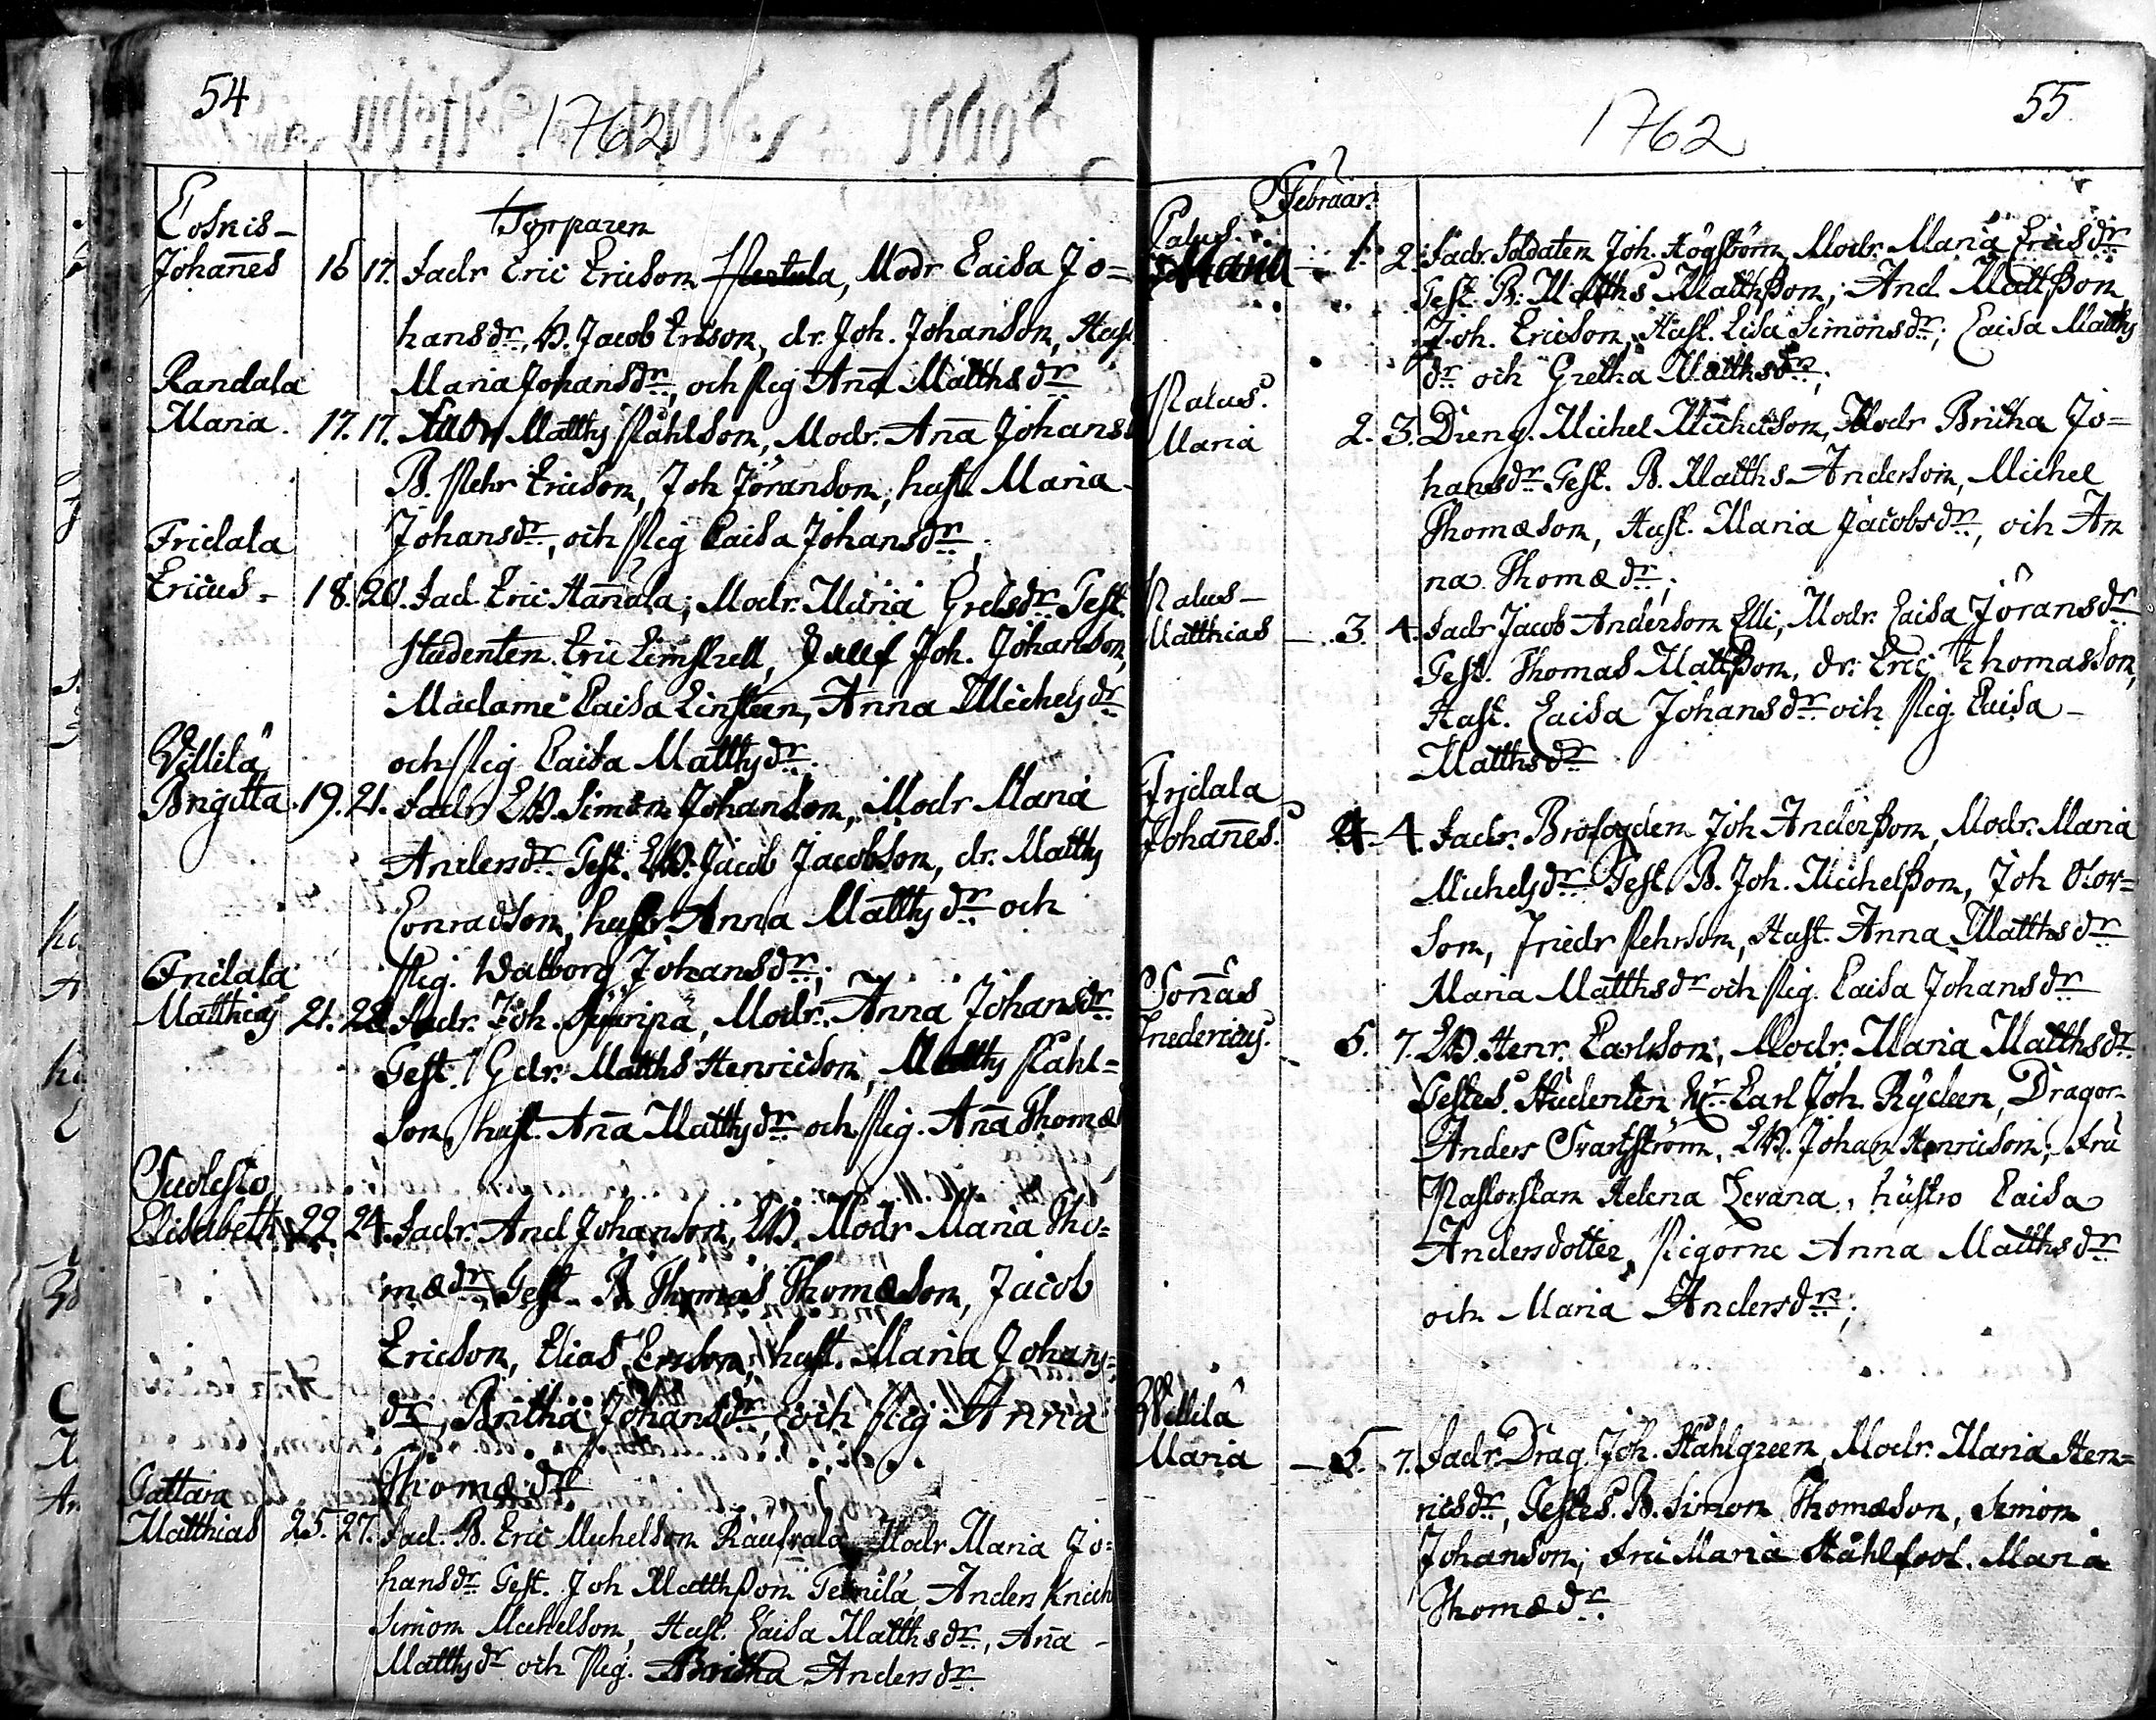 54
1762
Torparen
Johannes 16 17. Fadr Eric Ericson, Modr Caisa Jo=
hansdr, B. Jacob Ersson, dr. Joh. Johanson, Hust
Randala Maria Johansdr, och Pig Anna Matthsdr
Maria. 17. 17. Matths Påhlson, Modr. Anna Johans
B. Pehr Ericson, Joh Jöranson, hust. Maria
Fridala Johansdr, och Pig Caisa Johansdr;
Ericus 18. 20. Fad. Eric Hannala; Modr. Maria Grelsdr Test.
Studenten. Eric Joh. Johanson,
Madame Caisa Anna Michelsdr
Villilä och Pig Caisa Matthsdr.
Brigitta. 19. 21. Fadr Simon Johanson, Modr Maria
Andersdr Test. Jacob Jacobson, dr. Matths
Conradson, hustr. Anna Matthsdr och
Fridala Pig. Walborg Johansdr;
Matthias 21. 22. Fadr. Joh. Modr. Anna Johansdr
Test. Gdr. Matths Henricson, Matths Påhl=
son, hust. Anna Matthsdr och Pig. Anna Thomæ
Elisabeth 22. 24. Fadr. And Johanson, Modr Maria Tho=
mædr, Test. B. Thomas Thomæson, Jacob
Ericson, Elias Ersson, hust. Maria Johans=
dr, Britha Johansdr, och Pig Anna
Cattara Thomædr
Matthias 25. 27. Fad. B. Eric Michelson Modr Maria Jo=
hansdr Test. Joh Matthßon Anders
Simon Michelson, Hust. Caisa Matthsdr, Anna
Matthsdr och Pig. Britha Andersdr
55
1762
Februar.
Palus.
Maria 1. 2. Fadr. Soldaten Joh. Högström Modr. Maria Ericsdr
Test. B. Matths Matthßon; And Mattßon,
Joh. Ericson, Hust. Lisa Simonsdr; Caisa Matths
dr och Gretha Matthsdr;
Palus.
Maria 2. 3. Dreng. Michel Michelson, Modr Britha Jo=
hansdr Test. B. Matths Anderson, Michel
Thomæson, Hust. Maria Jacobsdr, och An
na Thomædr;
Palus
Matthias 3. 4. Fadr Jacob Anderson Elli, Modr. Caisa Jöransdr
Test. Thomas Mattßon, dr. Eric Thomasson,
Hust. Caisa Johansdr och Pig. Caisa
Matthsdr
Fridala
Johannes. 4. 4. Fadr. Brofogden Joh Anderßon, Modr. Maria
Michelsdr Test. B. Joh. Michelßon, Joh
son, Friedr Pehrson, Hust. Anna Matthsdr
Maria Matthsdr och Pig. Caisa Johansdr
Sonnäs
Fredericus. 5. 7. Henr. Carlsson, Modr. Maria Matthsdr
Testes. Studenten Hr Carl Joh. Rydeen, Dragon
Anders Svartström, Johan Henricson, Fru
Pastorskan Helena Levana, hustro Caisa
Andersdotter, Pigorne Anna Matthsdr
och Maria Andersdr;
Villilä
Maria 5. 7. Fadr Drag. Joh. Ståhlgreen, Modr. Maria Hen=
ricsdr, Testes. B. Simon Thomæson, Simon
Johanson; Fru Maria Ståhlfoot. Maria
Thomædr.